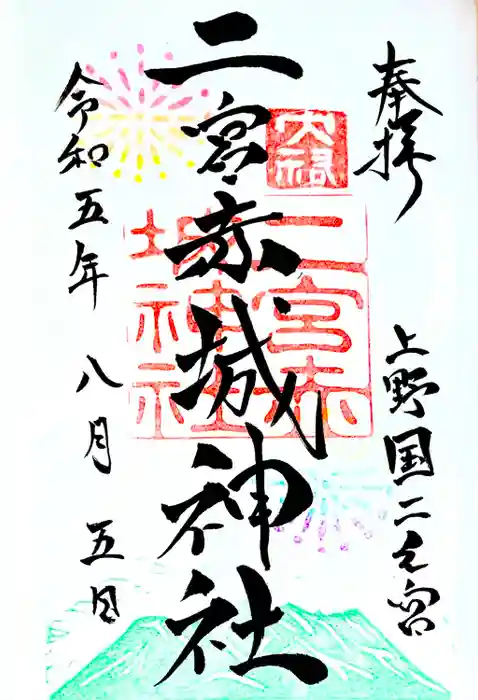 奉拝
上野国二之宮
二宮赤城神社
令和五年 八月 五日
二宮赤
城神社